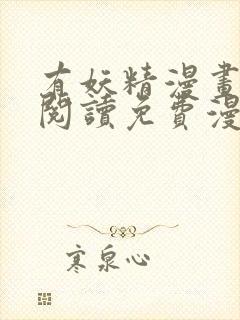 有妖精漫畫
閱讀免費漫
寒泉心